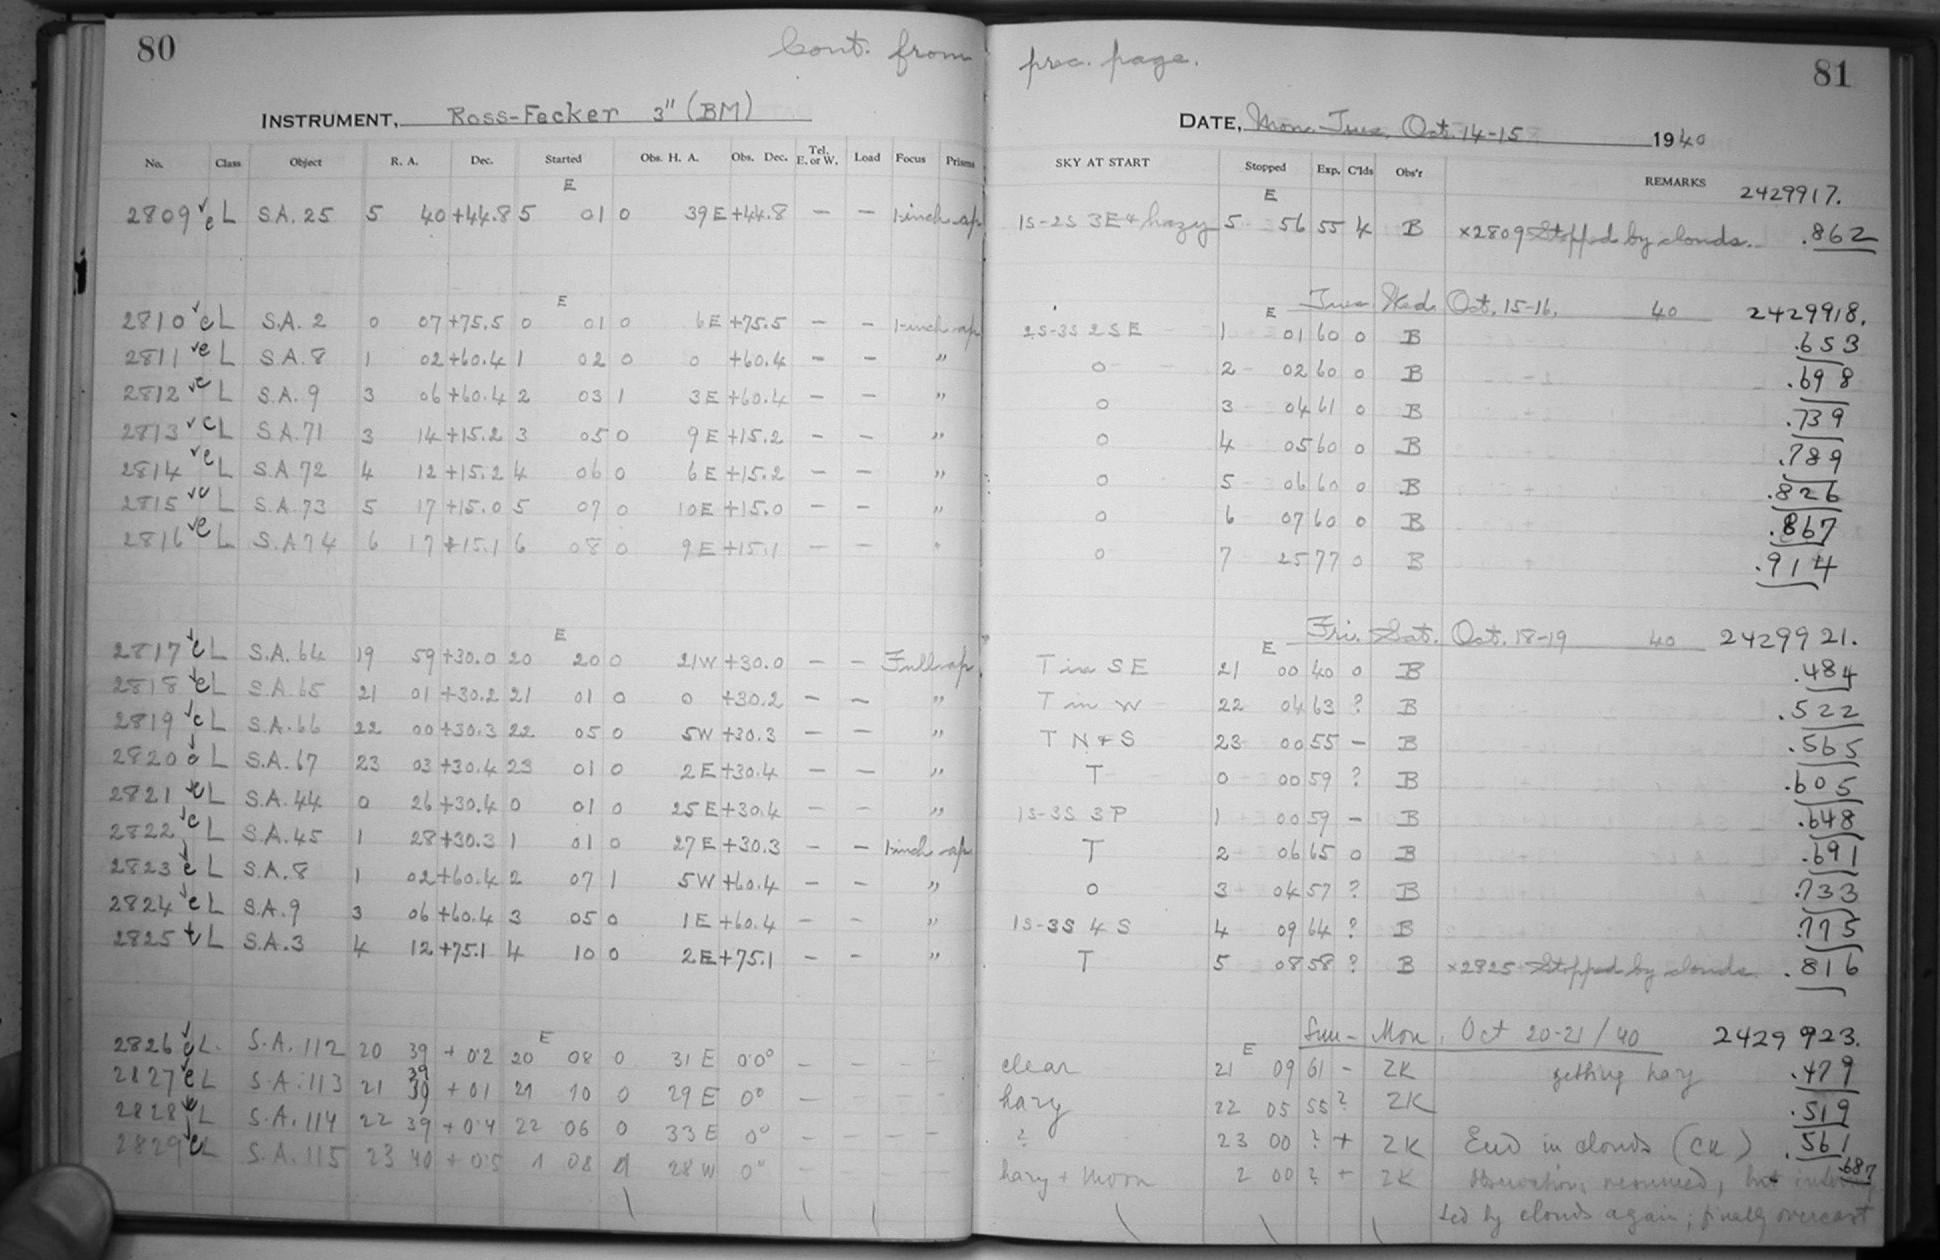 80
Cont. from
INSTRUMENT, Ross-Fecker 3" (BM)
No. Class Object R. A. Dec. Started Obs. H. A. Obs. Dec. Tel. E. or W. Load Focus Prisms
E
2809 L S.A. 25 5 40 +44.8 5 01 0 39 E +44.8 — — 1-inch ap
E
2810 L S.A. 2 0 07 +75.5 0 01 0 6E +75.5 — — 1-inch ap
2811 L S.A. 8 1 02 +60.4 1 02 0 0 +60.4 — — "
2812 L S.A. 9 3 06 +60.4 2 03 1 3E +60.4 — — "
2813 L S.A. 71 3 14 +15.2 3 05 0 9E +15.2 — — "
2814 L S.A. 72 4 12 +15.2 4 06 0 6E +15.2 — — "
2815 L S.A. 73 5 17 +15.0 5 07 0 10E +15.0 — — "
2816 L S.A 74 6 17 +15.1 6 08 0 9E +15.1 — — "
E
2817 L S.A. 64 19 59 +30.0 20 20 0 21W +30.0 — — Full ap
2818 L S.A. 65 21 01 +30.2 21 01 0 0 +30.2 — — "
2819 L S.A. 66 22 00 +30.3 22 05 0 5W +30.3 — — "
2820 L S.A. 67 23 03 +30.4 23 01 0 2E +30.4 — — "
2821 L S.A. 44 0 26 +30.4 0 01 0 25E +30.4 — — "
2822 L S.A. 45 1 28 +30.3 1 01 0 27E +30.3 — — 1-inch ap
2823 L S.A. 8 1 02 +60.4 2 07 1 5W +60.4 — — "
2824 L S.A. 9 3 06 +60.4 3 05 0 1E +60.4 — — "
2825 L S.A. 3 4 12 +75.1 4 10 0 2E +75.1 — — "
E
2826 L. S.A. 112 20 39 + 0.2 20 08 0 31 E 0.0° — — — —
2827 L S.A. 113 21 39 + 0.1 21 10 0 29 E 0° — — — —
2828 L S.A. 114 22 39 + 0.4 22 06 0 33 E 0° — — — —
2829 L S.A. 115 23 40 + 0.5 1 08 28 W 0° — — — —
prec. page.
81
DATE, Mon. Tues. Oct. 14-15 1940
SKY AT START Stopped Exp. C'lds Obs'r REMARKS
E 2429917.
1S-2S 3E+hazy 5 56 55 4 B ×2809 Stopped by clouds. .862
E Tues Wed. Oct. 15-16. 40 2429918.
2S-3S 2SE 1 01 60 0 B .653
0 2 02 60 0 B .698
0 3 04 61 0 B .739
0 4 05 60 0 B .789
0 5 06 60 0 B .826
0 6 07 60 0 B .867
0 7 25 77 0 B .914
E Fri. Sat. Oct. 18-19 40 2429921.
T in SE 21 00 40 0 B .484
T in W 22 04 63 ? B .522
T N+S 23 00 55 — B .565
T 0 00 59 ? B .605
1S-3S 3P 1 00 59 — B .648
T 2 06 65 0 B .691
0 3 04 57 ? B .733
1S-3S 4 S 4 09 64 ? B .775
T 5 08 58 ? B ×2825 Stopped by clouds .816
E Sun-Mon. Oct 20-21/40 2429923.
clear 21 09 61 - ZK getting hazy .479
hazy 22 05 55 ? ZK .519
? 23 00 ? + ZK End in clouds (CK) .561
hazy + Moon 2 00 ? + ZK Observations resumed, but .687
ted by clouds again; finally overcast